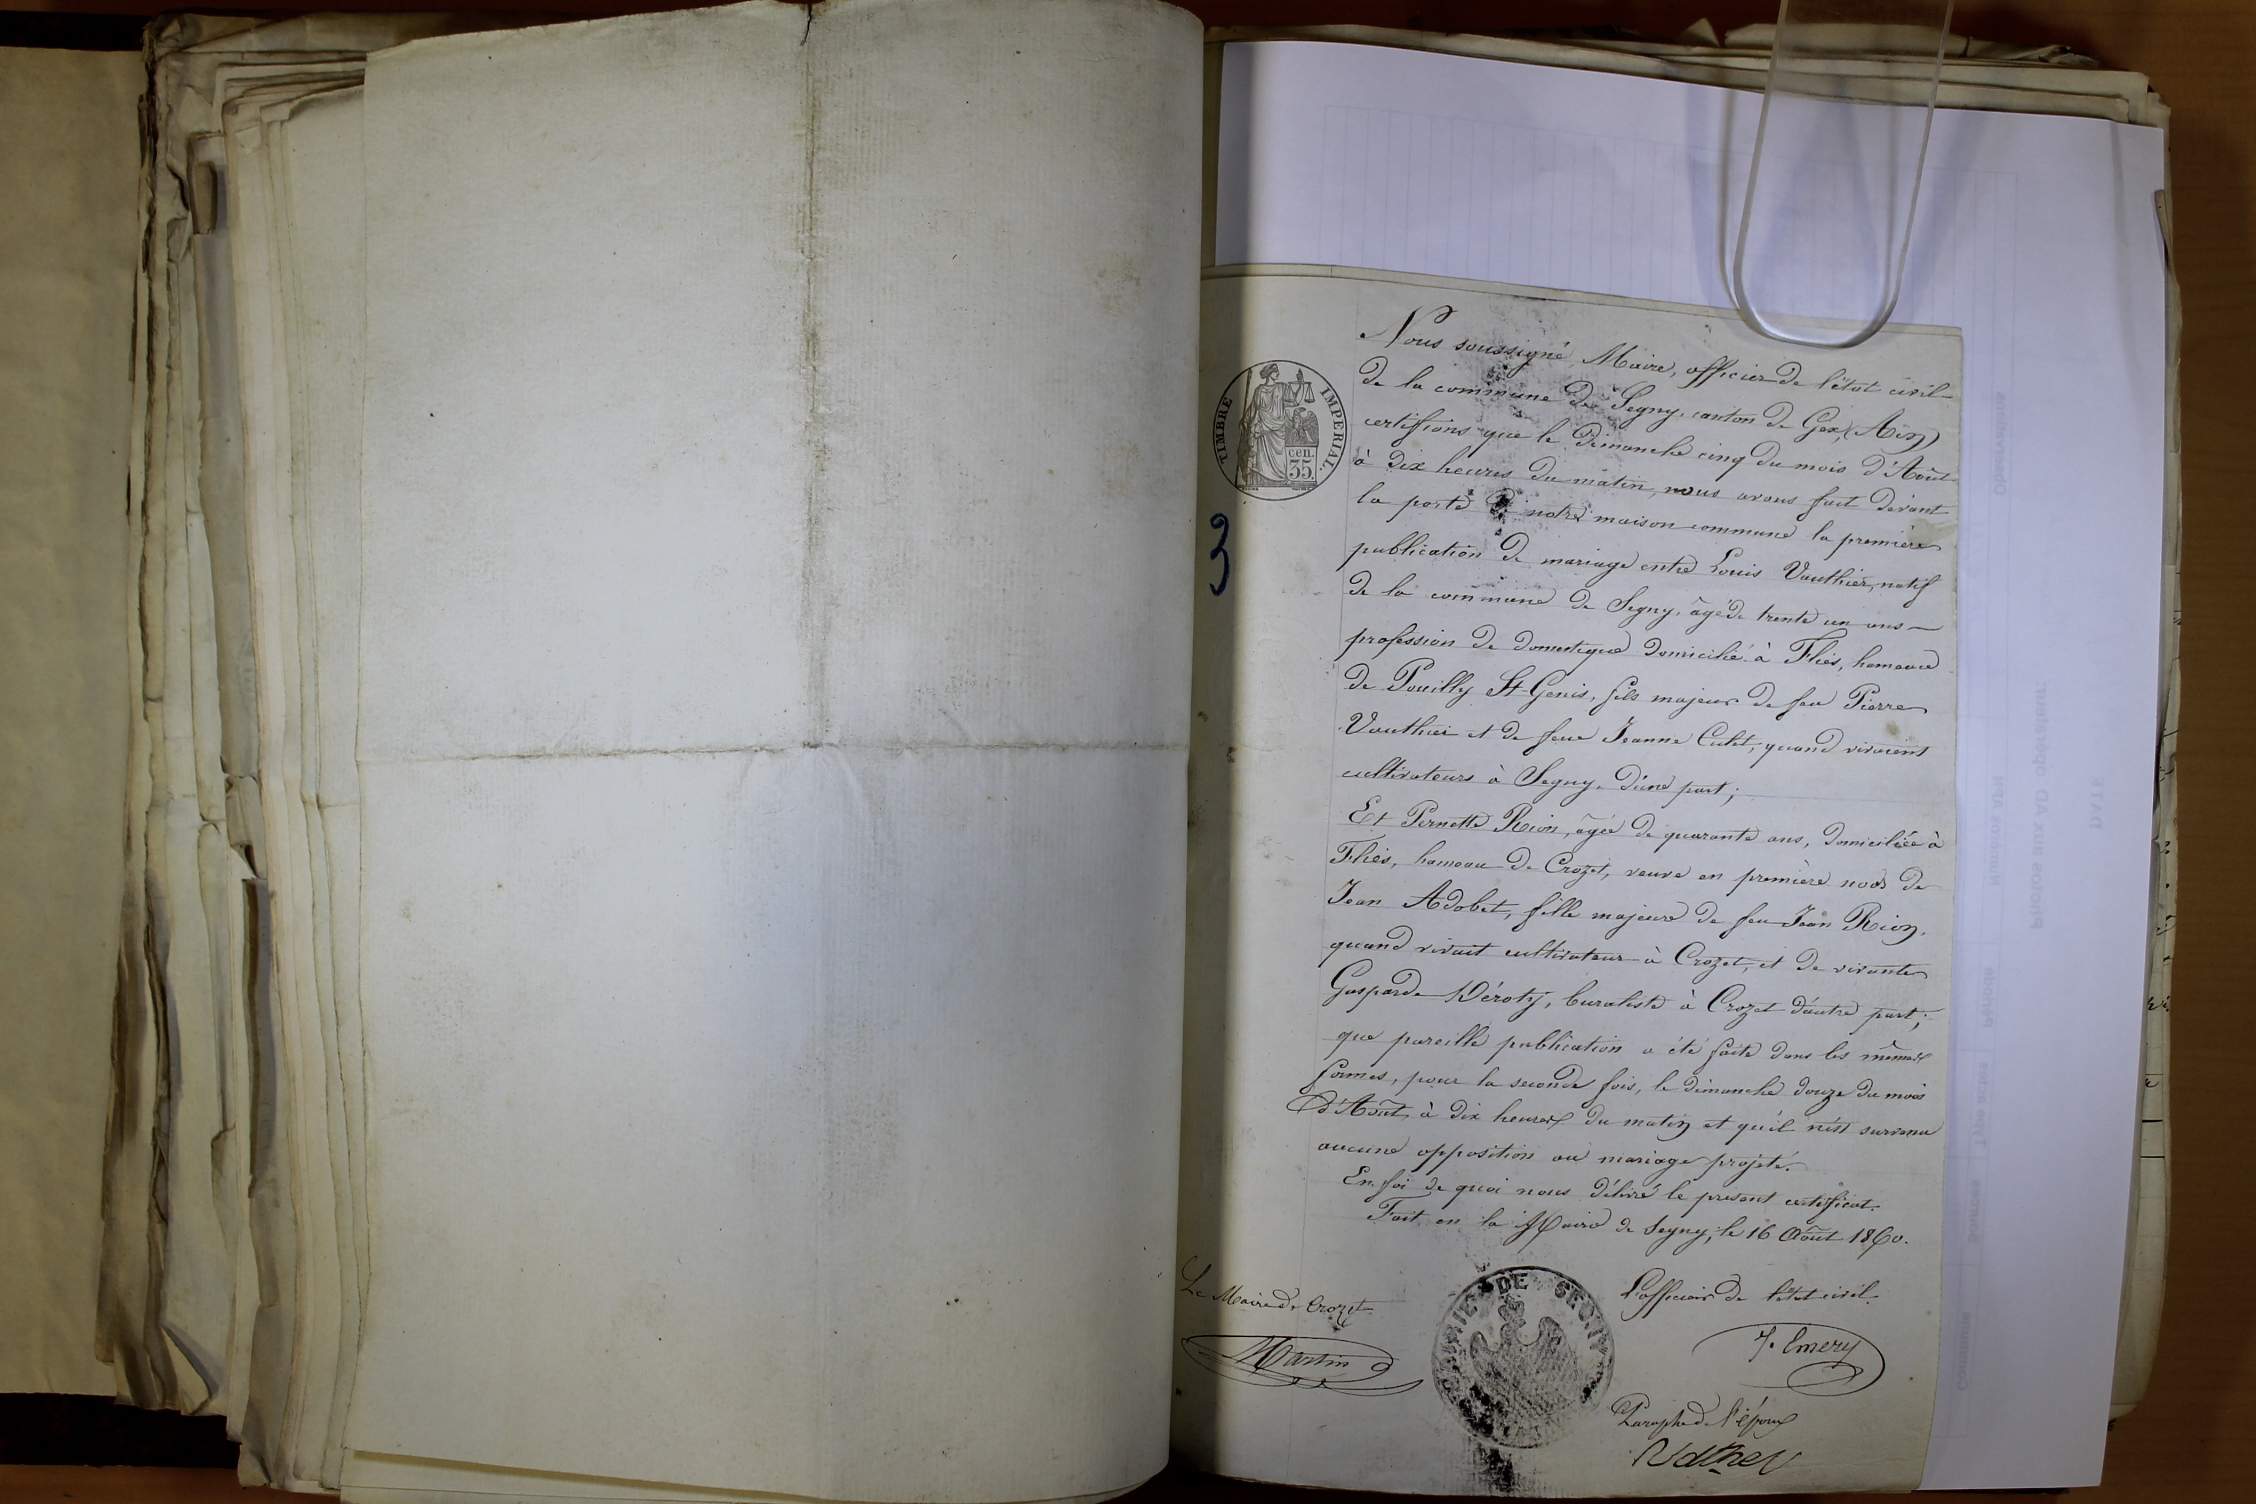 TIMBRE IMPERIAL.
cen.
35.
3
Nous soussigné Maire, officier de l'état civil
de la commune de Segny, canton de Gex, (Ain)
certifions que le dimanche cinq du mois d'Août
à dix heures du matin, nous avons fait devant
la porte de notre maison commune la première
publication de mariage entre Louis Vauthier, natif
de la commune de Segny, âgé de trente un ans
profession de domestique domicilié à Flies, hameau
de Pouilly St Genis, fils majeur de feu Pierre
Vauthier et de feue Jeanne Culet, quand vivaient
cultivateurs à Segny, d'une part;
Et Pernette Rion, âgée de quarante ans, domiciliée à
Flies, hameau de Crozet, veuve en première noos de
Jean Adobet, fille majeure de feu Jean Rion,
quand vivait cultivateur à Crozet, et de vivante
Gasparde Déroty, buraliste à Crozet d'autre part;
que pareille publication a été faite dans les mêmes
formes, pour la seconde fois, le dimanche douze du mois
d'Août, à dix heures du matin et qu'il n'est survenu
aucune opposition au mariage projeté.
En foi de quoi nous délivré le présent certificat.
Fait en la Mairie de Segny, le 16 Août 1860.
Le Maire de Crozet
Martin
MAIRIE DE SEGNY
L'officier de l'état civil
J. Emery
Paraphe de l'époux